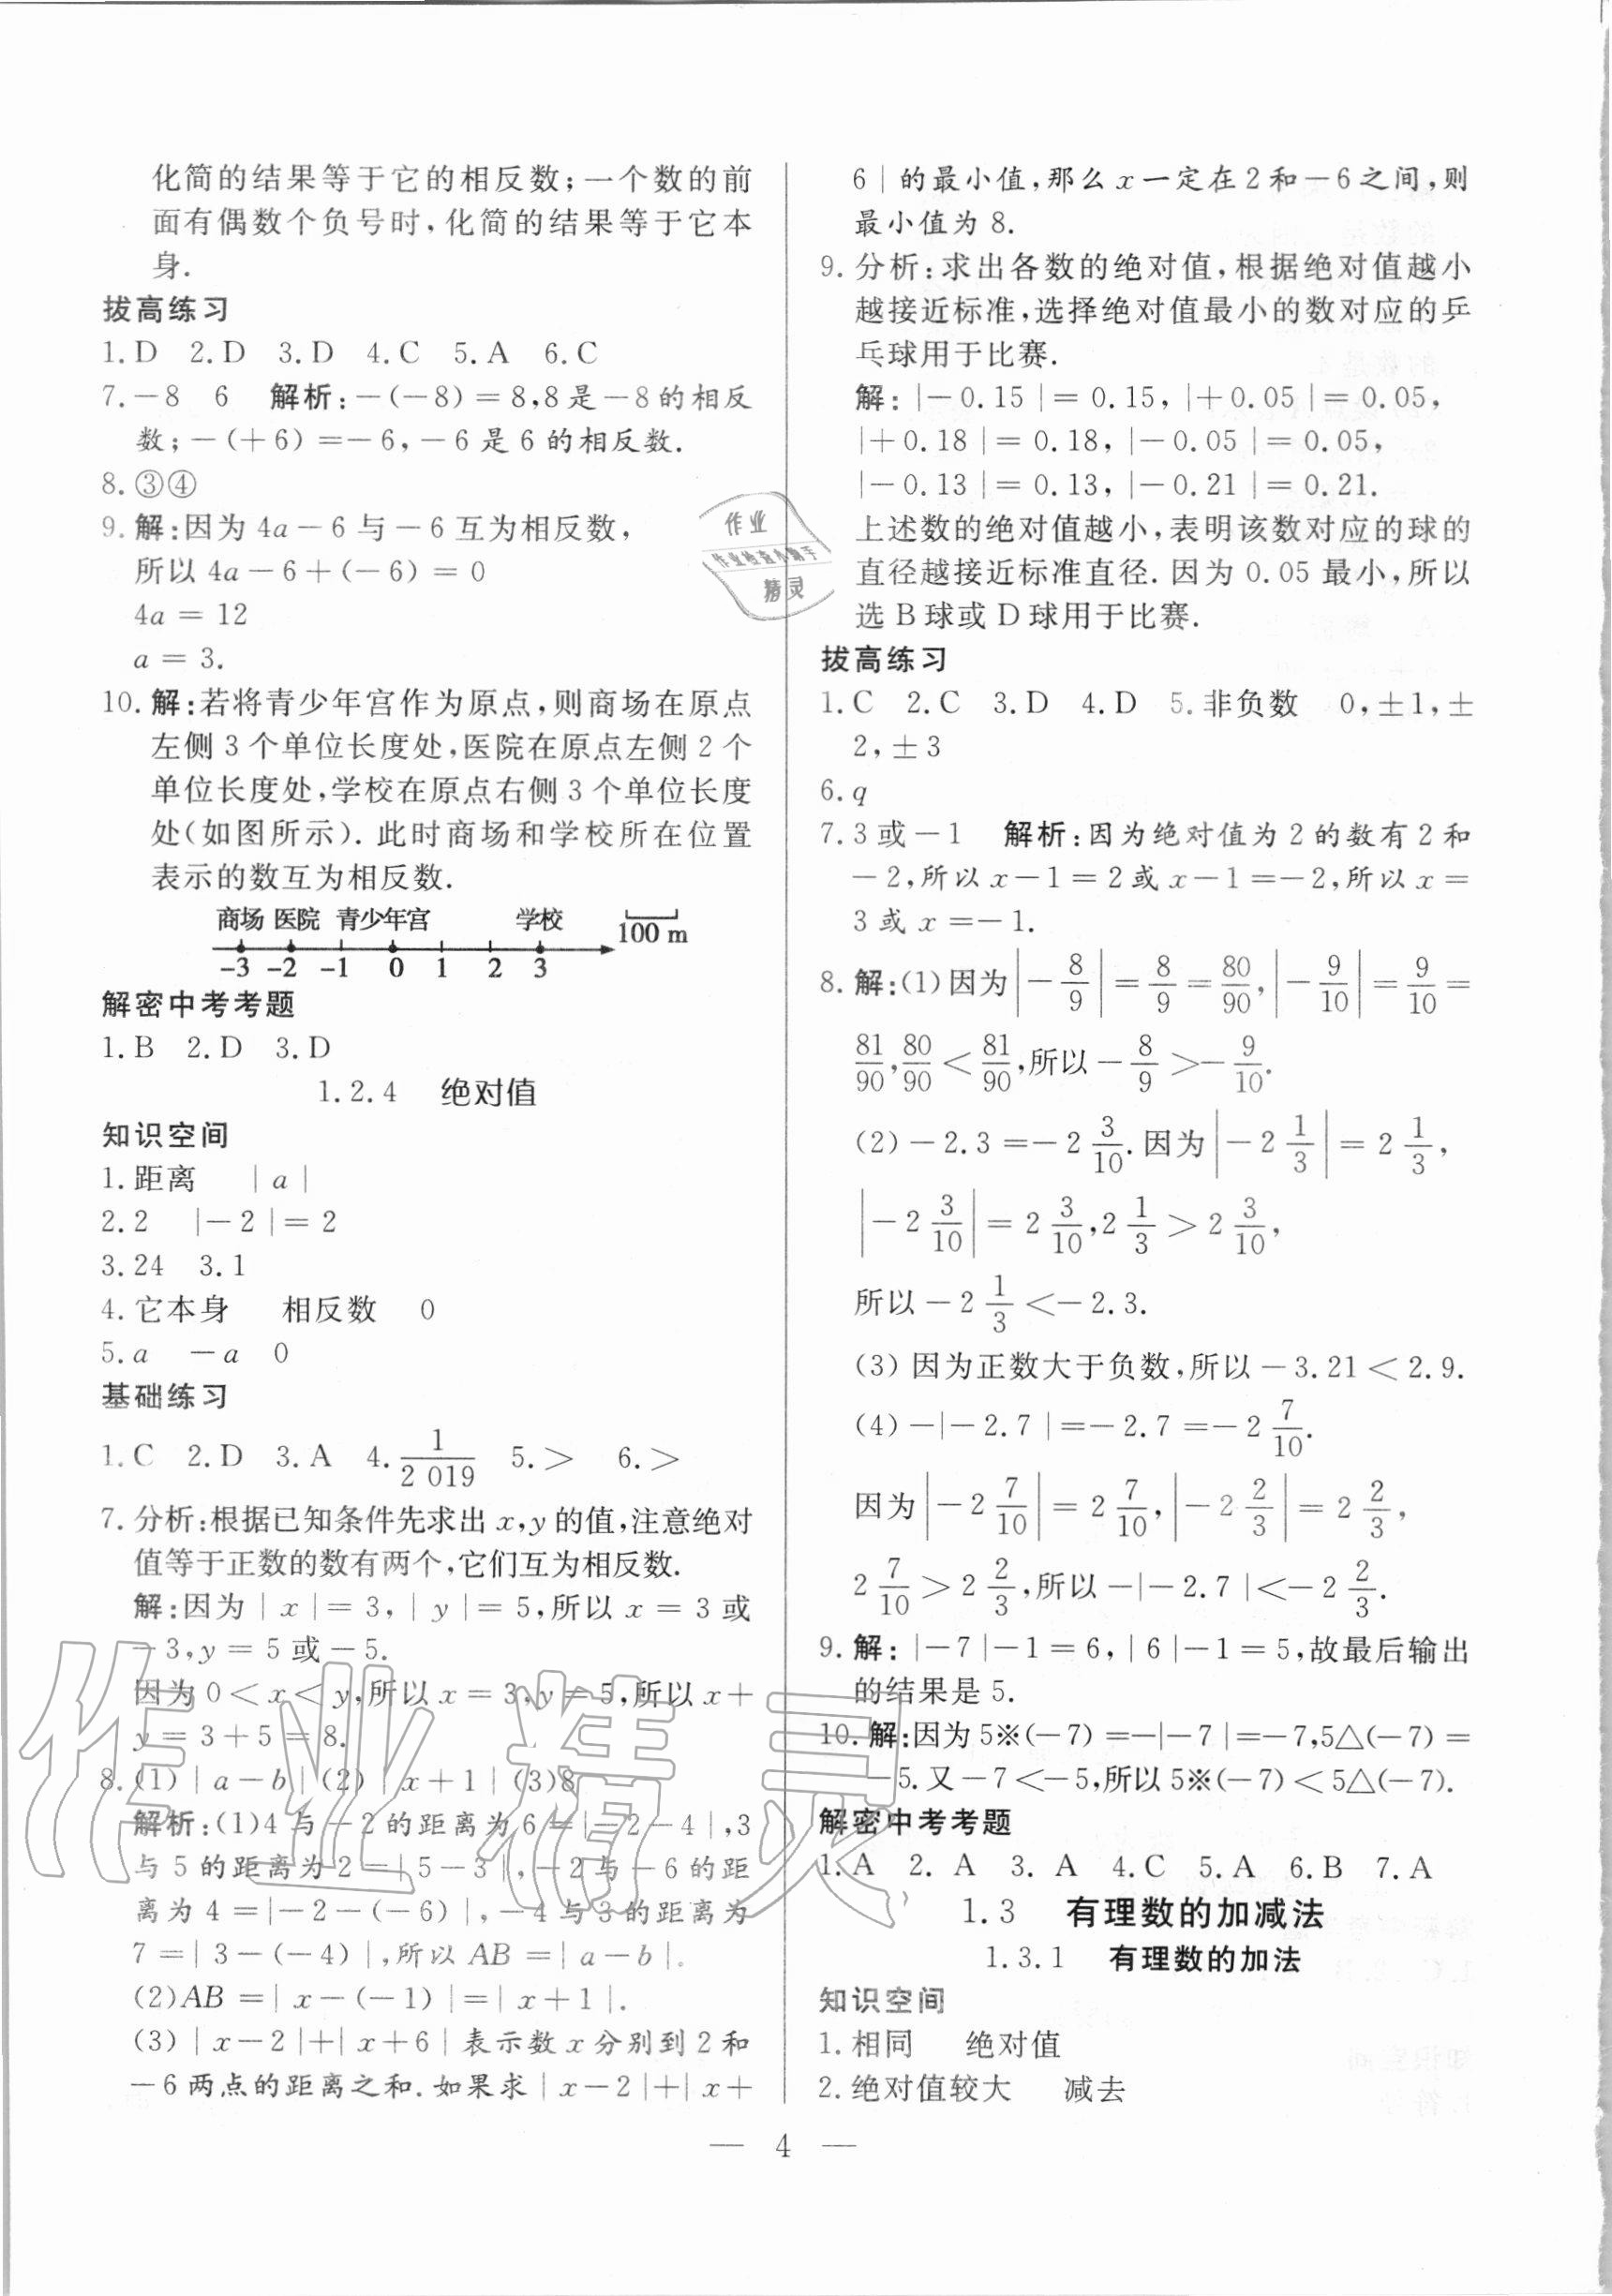 化简的结果等于它的相反数;一个数的前
面有偶数个负号时,化简的结果等于它本
身.
拔高练习
1.D 2.D 3.D 4.C 5.A 6.C
7.－8 6 解析:－(－8)＝8,8是－8的相反
数;－(＋6)＝－6,－6是6的相反数.
8.③④
9.解:因为4a－6与－6互为相反数,
所以4a－6＋(－6)＝0
4a＝12
a＝3.
10.解:若将青少年宫作为原点,则商场在原点
左侧3个单位长度处,医院在原点左侧2个
单位长度处,学校在原点右侧3个单位长度
处(如图所示).此时商场和学校所在位置
表示的数互为相反数.
商场 医院 青少年宫 学校 100 m
-3 -2 -1 0 1 2 3
解密中考考题
1.B 2.D 3.D
1.2.4 绝对值
知识空间
1.距离 |a|
2.2 |－2|＝2
3.24 3.1
4.它本身 相反数 0
5.a －a 0
基础练习
1.C 2.D 3.A 4.1/2 019 5.＞ 6.＞
7.分析:根据已知条件先求出x,y的值,注意绝对
值等于正数的数有两个,它们互为相反数.
解:因为|x|＝3,|y|＝5,所以x＝3或
－3,y＝5或－5.
因为0＜x＜y,所以x＝3,y＝5,所以x＋
y＝3＋5＝8.
8.(1)|a－b| (2)|x＋1| (3)8
解析:(1)4与－2的距离为6＝|－2－4|,3
与5的距离为2＝|5－3|,－2与－6的距
离为4＝|－2－(－6)|,－4与3的距离为
7＝|3－(－4)|,所以AB＝|a－b|。
(2)AB＝|x－(－1)|＝|x＋1|.
(3)|x－2|＋|x＋6|表示数x分别到2和
－6两点的距离之和.如果求|x－2|＋|x＋
6|的最小值,那么x一定在2和－6之间,则
最小值为8.
9.分析:求出各数的绝对值,根据绝对值越小
越接近标准,选择绝对值最小的数对应的乒
乓球用于比赛.
解:|－0.15|＝0.15,|＋0.05|＝0.05,
|＋0.18|＝0.18,|－0.05|＝0.05,
|－0.13|＝0.13,|－0.21|＝0.21.
上述数的绝对值越小,表明该数对应的球的
直径越接近标准直径.因为0.05最小,所以
选B球或D球用于比赛.
拔高练习
1.C 2.C 3.D 4.D 5.非负数 0,±1,±
2,±3
6.q
7.3或－1 解析:因为绝对值为2的数有2和
－2,所以x－1＝2或x－1＝－2,所以x＝
3或x＝－1.
8.解:(1)因为|－8/9|＝8/9＝80/90,|－9/10|＝9/10＝
81/90,80/90＜81/90,所以－8/9＞－9/10.
(2)－2.3＝－2 3/10.因为|－2 1/3|＝2 1/3,
|－2 3/10|＝2 3/10,2 1/3＞2 3/10,
所以－2 1/3＜－2.3.
(3)因为正数大于负数,所以－3.21＜2.9.
(4)－|－2.7|＝－2.7＝－2 7/10.
因为|－2 7/10|＝2 7/10,|－2 2/3|＝2 2/3,
2 7/10＞2 2/3,所以－|－2.7|＜－2 2/3.
9.解:|－7|－1＝6,|6|－1＝5,故最后输出
的结果是5.
10.解:因为5※(－7)＝－|－7|＝－7,5△(－7)＝
－5.又－7＜－5,所以5※(－7)＜5△(－7).
解密中考考题
1.A 2.A 3.A 4.C 5.A 6.B 7.A
1.3 有理数的加减法
1.3.1 有理数的加法
知识空间
1.相同 绝对值
2.绝对值较大 减去
— 4 —
作业
作业检查小助手
精灵
作业精灵